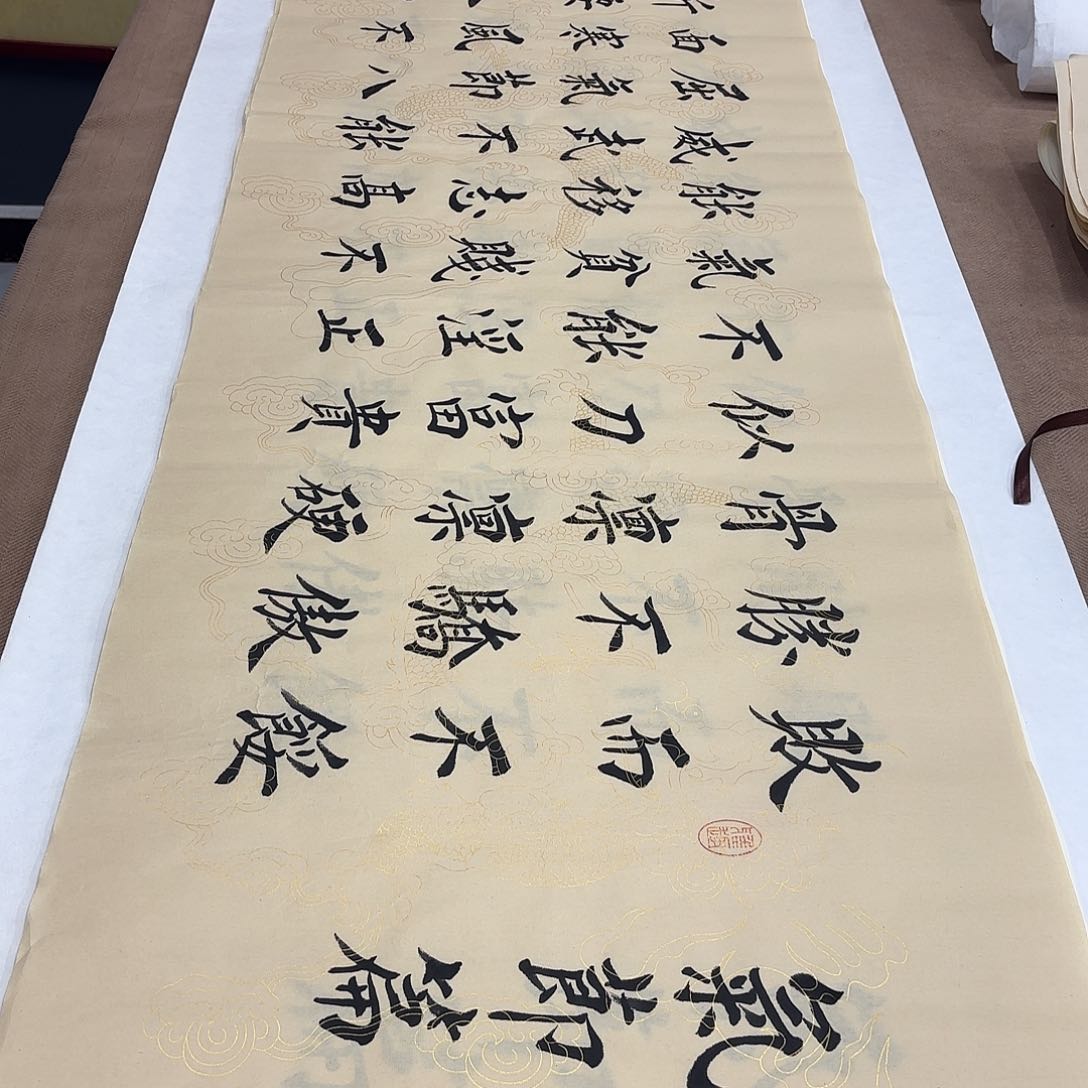 氣節篇
敗而不餒
勝不驕傲
骨凜凜硬
似刀富貴
不能淫正
氣貧賤不
能移志高
威武不能
屈氣節八
面寒風不